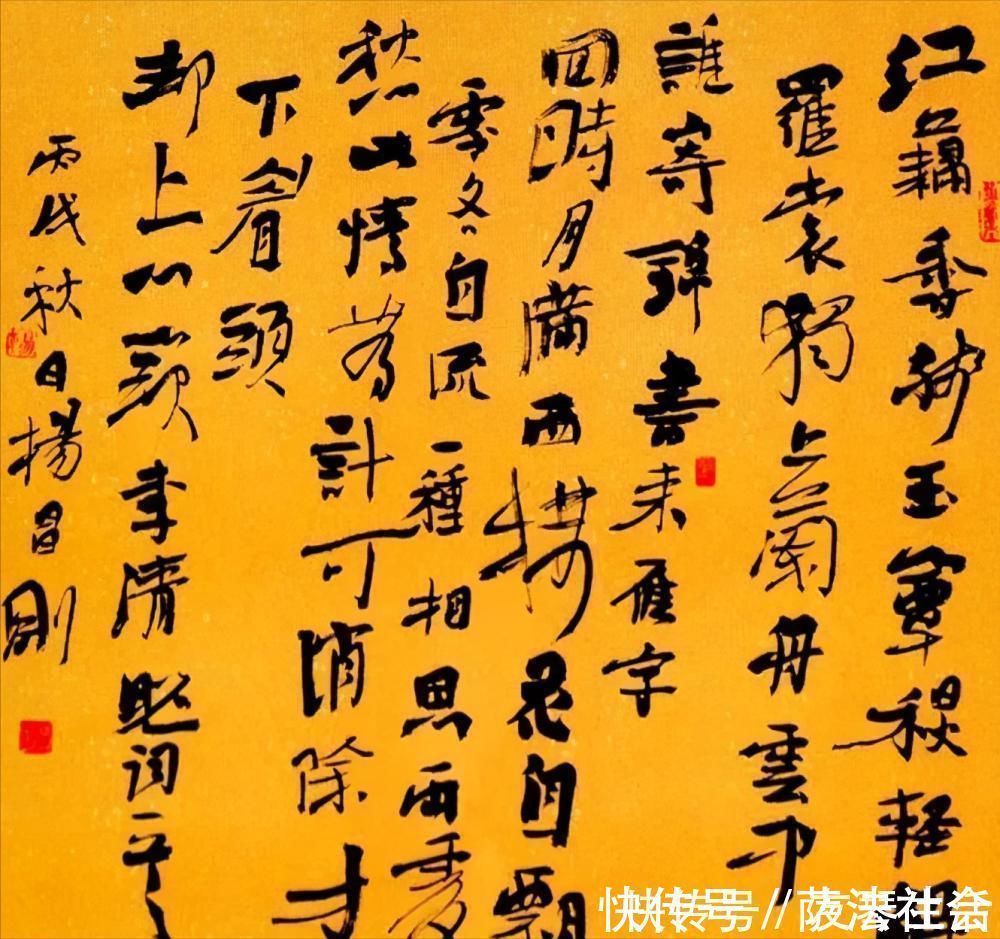 红藕香残玉簟秋軽解
羅裳獨上蘭舟雲中
誰寄錦書来雁字
回時月滿西樓花自飄
零水自流一種相思兩處
愁此情無計可消除才
下眉頭
却上心頭李清照词一首
丙戌秋日楊昌刚